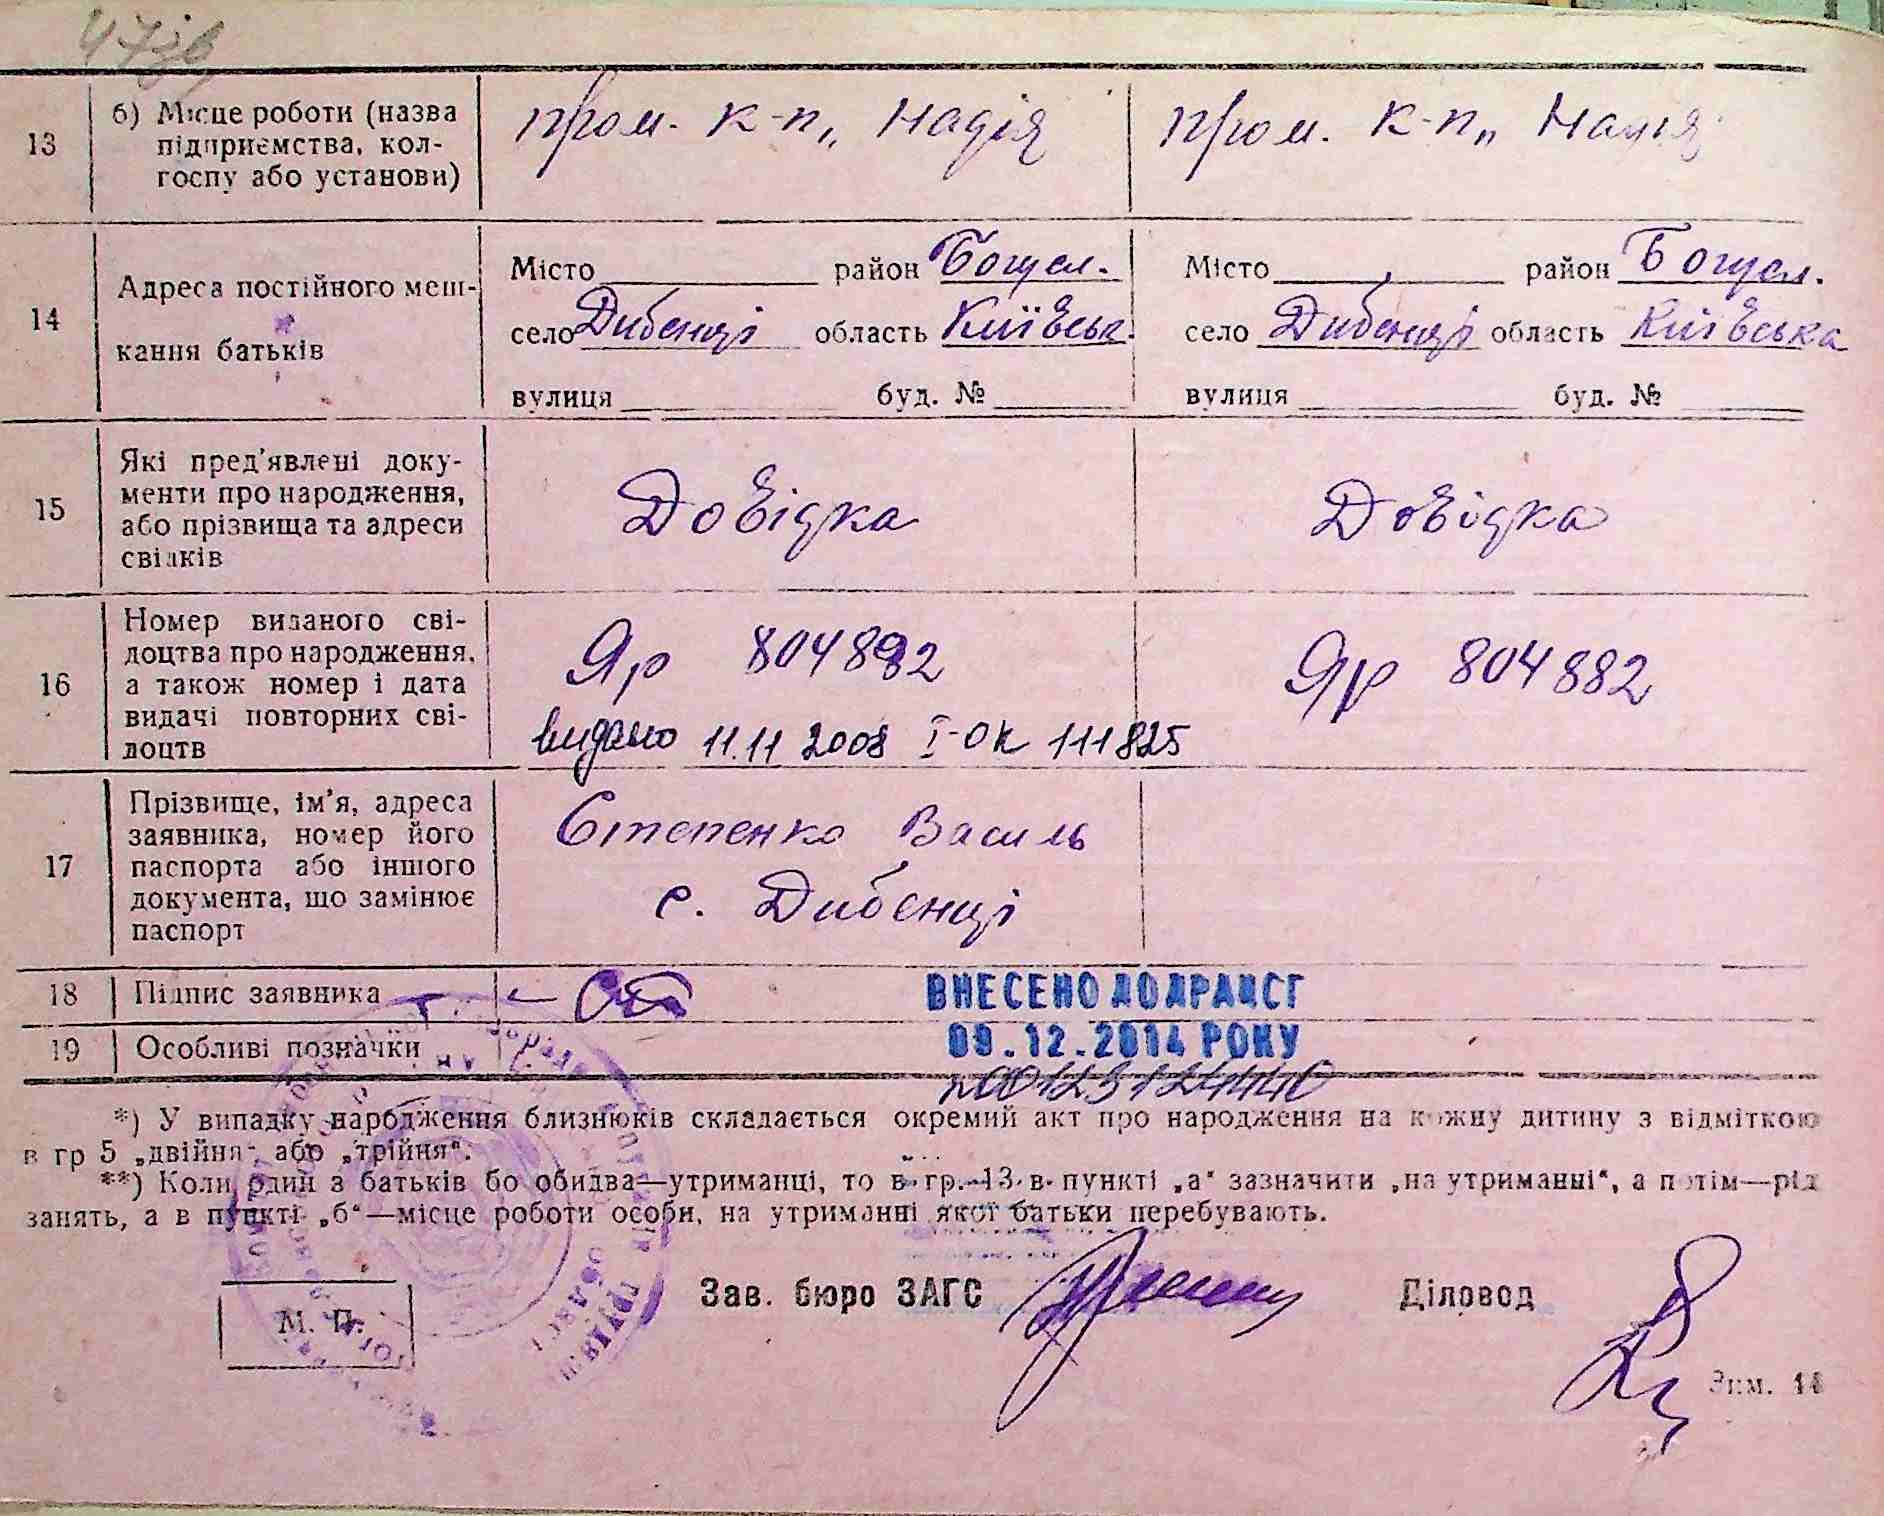 47зв
13
б) Місце роботи (назва
підприємства, кол-
госпу або установи)
пром. к-п „ Надія
пром. к-п „ Надія
14
Адреса постійного меш-
кання батьків
Місто район Богусл.
село Дибенці область Київськ.
вулиця буд. №
Місто район Богусл.
село Дибенці область Київська
вулиця буд. №
15
Які пред'явлені доку-
менти про народження,
або прізвища та адреси
свідків
Довідка
Довідка
16
Номер виданого сві-
доцтва про народження,
а також номер і дата
видачі повторних сві-
доцтв
Яр 804882
видано 11.11 2008 І-ОК 111825
Яр 804882
17
Прізвище, ім'я, адреса
заявника, номер його
паспорта або іншого
документа, що замінює
паспорт
Степенко Василь
с. Дибенці
18 Підпис заявника
ВНЕСЕНО ДО ДРАЦСГ
19 Особливі позначки
09.12.2014 РОКУ
*) У випадку народження близнюків складається окремий акт про народження на кожну дитину з відміткою
в гр 5 „двійня“ або „трійня“.
**) Коли один з батьків бо обидва—утриманці, то в гр. 13 в пункті „а“ зазначити „на утриманні“, а потім—рід
занять, а в пункті „б“—місце роботи особи, на утриманні якої батьки перебувають.
Зав. бюро ЗАГС Діловод
М. П.